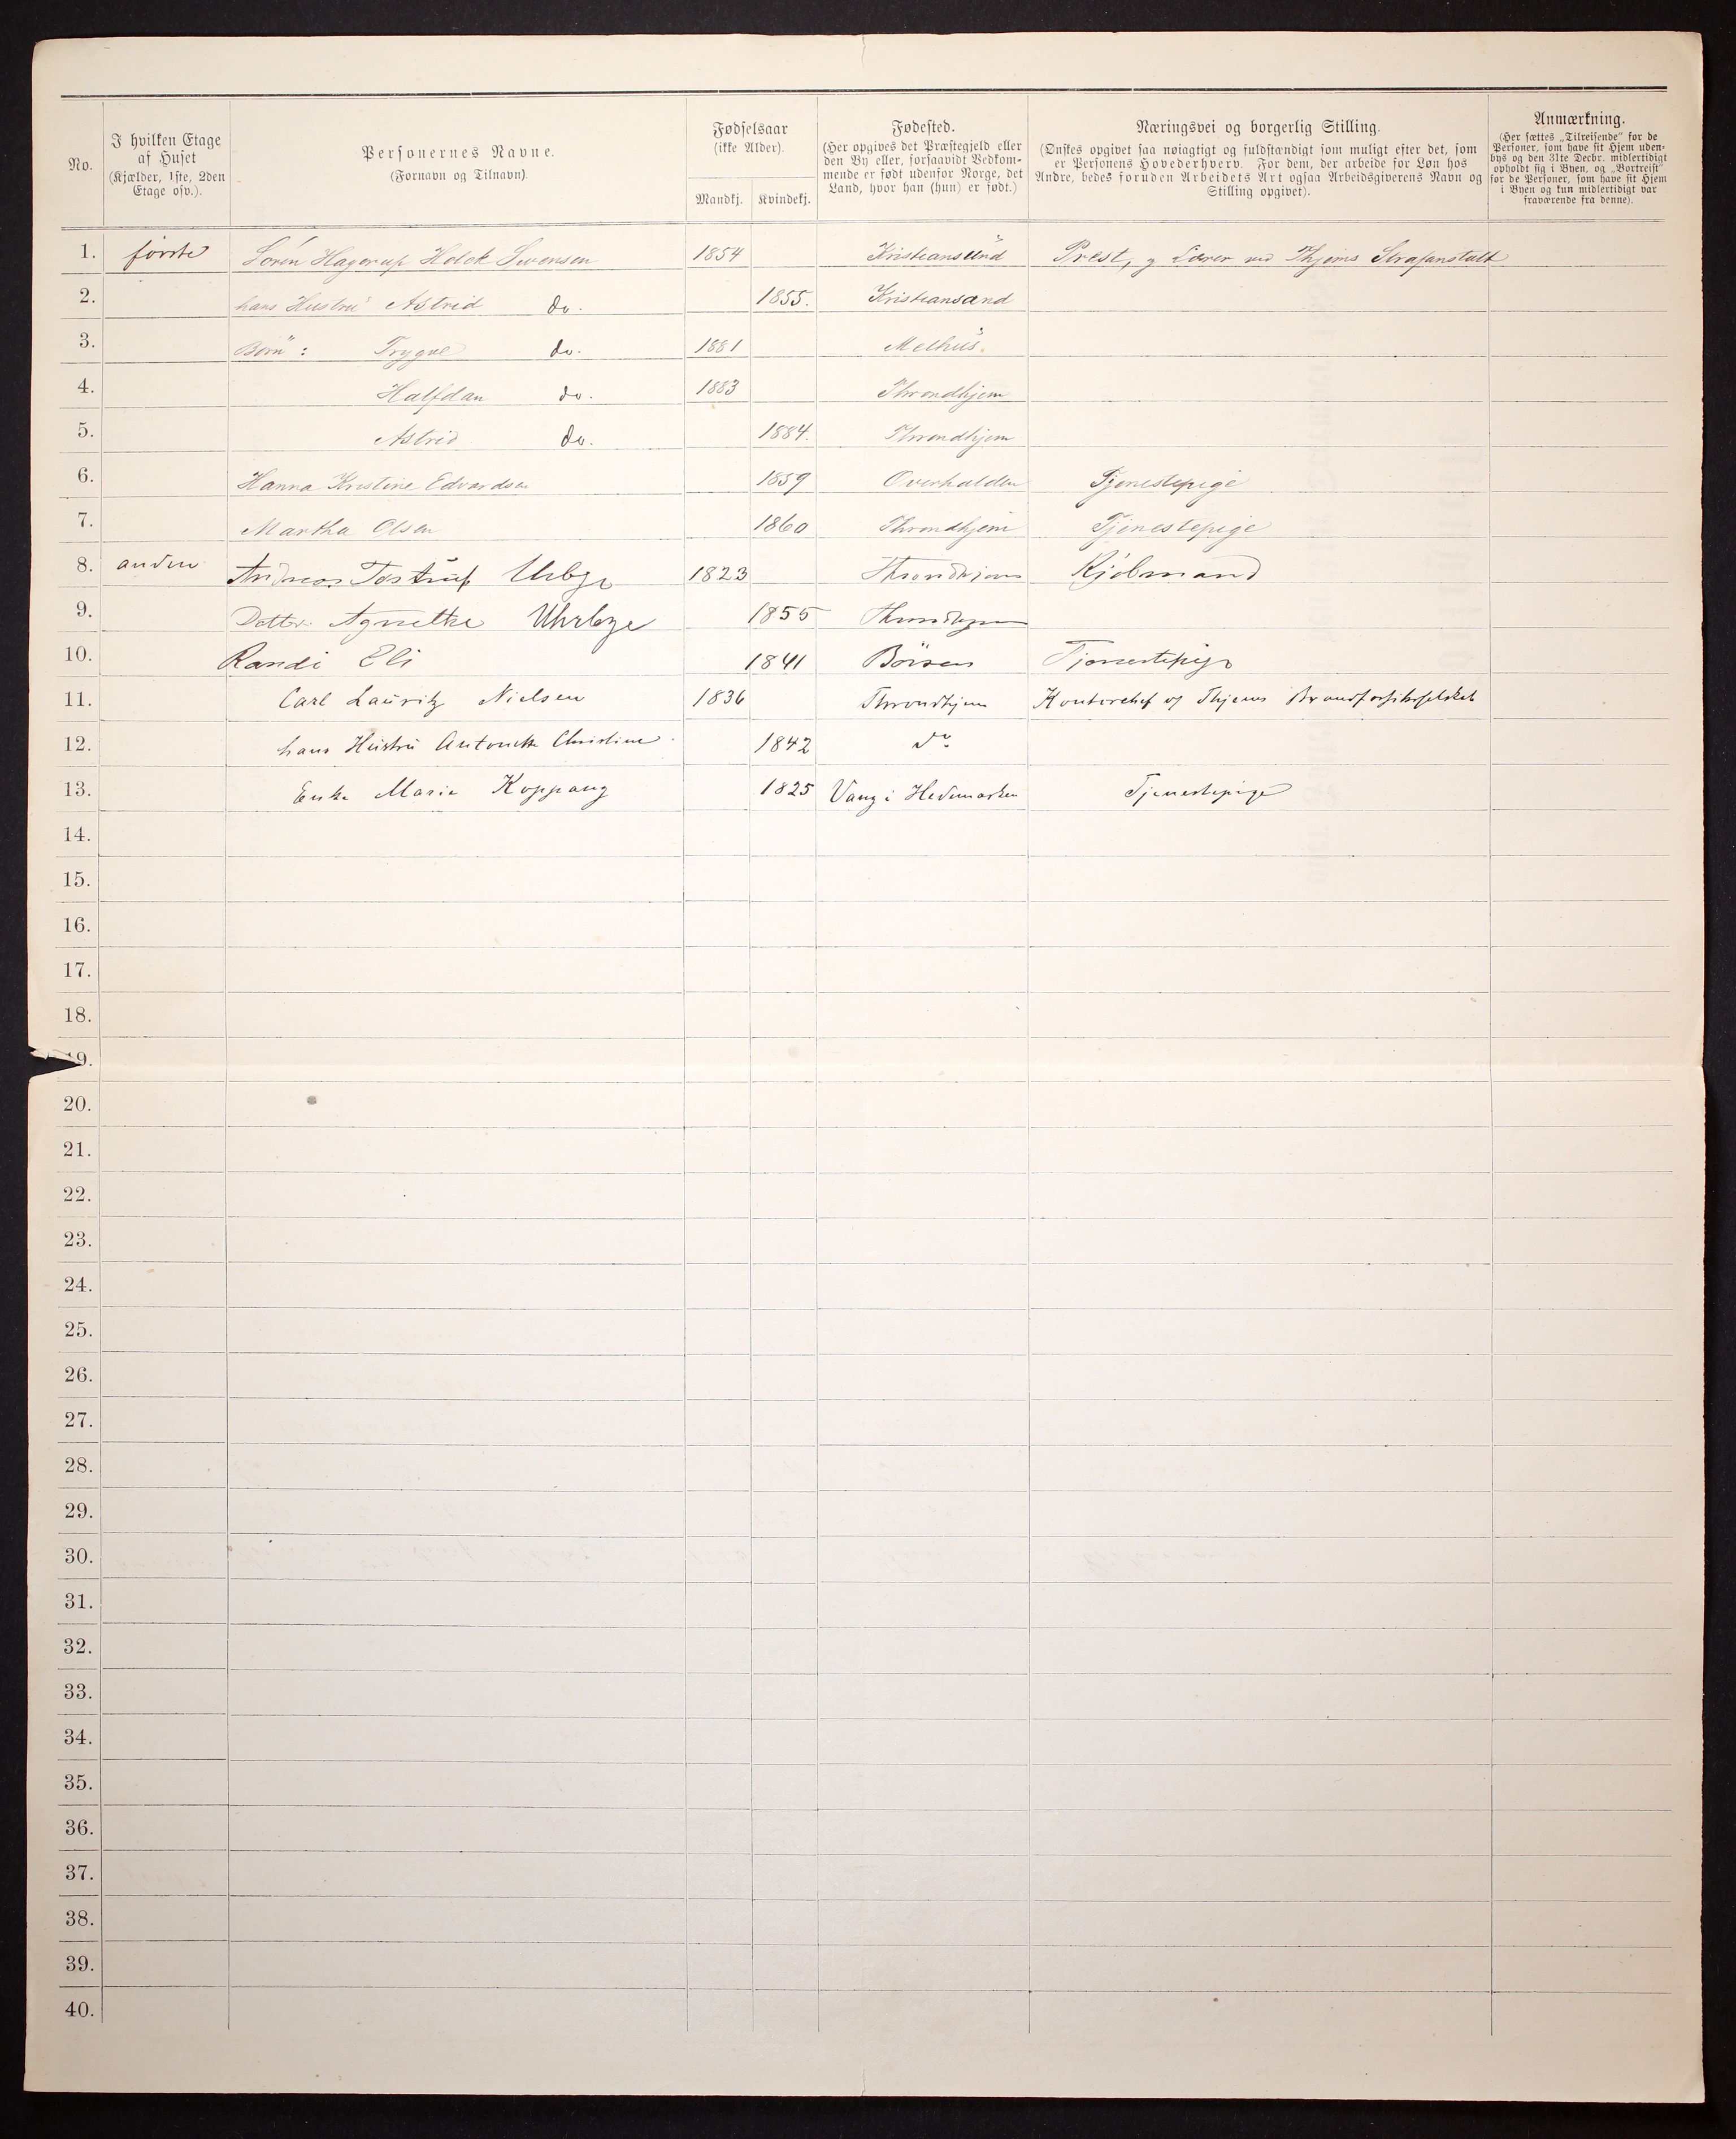 No.
I hvilken Etage
af Huset
(Kjælder, 1ste, 2den
Etage osv.).
Personernes Navne.
(Fornavn og Tilnavn).
Fødselsaar
(ikke Alder).
Mandkj. Kvindekj.
Fødested.
(Her opgives det Præstegjeld eller
den By eller, forsaavidt Vedkom-
mende er født udenfor Norge, det
Land, hvor han (hun) er født.)
Næringsvei og borgerlig Stilling.
(Ønskes opgivet saa nøiagtigt og fuldstændigt som muligt efter det, som
er Personens Hovederhverv. For dem, der arbeide for Løn hos
Andre, bedes foruden Arbeidets Art ogsaa Arbeidsgiverens Navn og
Stilling opgivet).
Anmærkning.
(Her sættes „Tilreisende“ for de
Personer, som have sit Hjem uden-
bys og den 31te Decbr. midlertidigt
opholdt sig i Byen, og „Bortreist“
for de Personer, som have sit Hjem
i Byen og kun midlertidigt var
fraværende fra denne).
1. første Sørén Hagerup Holck Svensen 1854 Kristiansund Prest, og Lærer ved Thjems Strafanstalt
2. hans Hustru Astrid do. 1855. Kristiansand
3. Børn: Trygve do. 1881 Melhus.
4. Halfdan do. 1883 Throndhjem
5. Astrid do. 1884. Throndhjem
6. Hanna Kristine Edvardsen 1859 Overhalden Tjenestepige
7. Martha Olsen 1860 Throndhjem Tjenestepige
8. anden Andreas Tostrup Urbye 1823 Throndhjem Kjøbmand
9. Datter Agnethe Uhrbye 1855 Throndhjem
10. Randi Eli 1841 Børsen Tjenestepige
11. Carl Lauritz Nielsen 1836 Throndhjem Kontorchef i Thjems Brandforsikrselskab
12. hans Hustru Antonette Christine 1842 do
13. Enke Marie Koppang 1825 Vang i Hedemarken Tjenestepige
14.
15.
16.
17.
18.
19.
20.
21.
22.
23.
24.
25.
26.
27.
28.
29.
30.
31.
32.
33.
34.
35.
36.
37.
38.
39.
40.